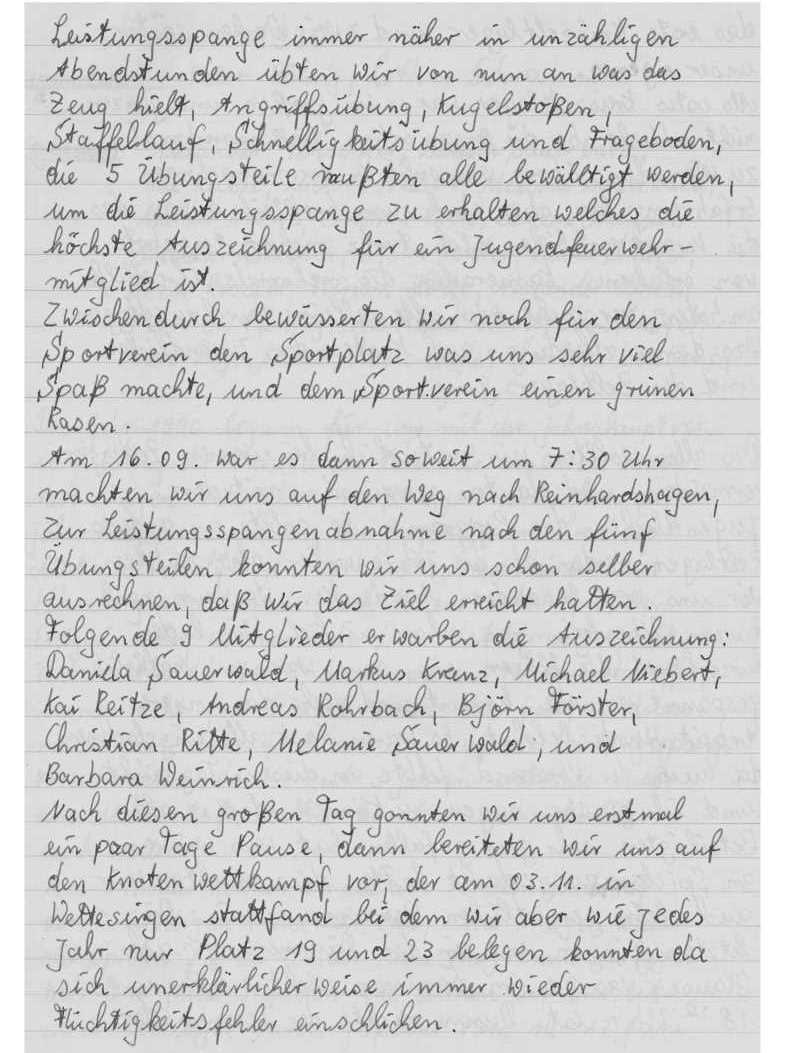 Leistungsspange immer näher in unzähligen
Abendstunden übten wir von nun an was das
Zeug hielt, Angriffsübung, Kugelstoßen,
Staffellauf, Schnelligkeitsübung und Frageboden,
die 5 Übungsteile mußten alle bewälltigt werden,
um die Leistungsspange zu erhalten welches die
höchste Auszeichnung für ein Jugendfeuerwehr-
mitglied ist.
Zwischendurch bewässerten wir noch für den
Sportverein den Sportplatz was uns sehr viel
Spaß machte, und dem Sportverein einen grünen
Rasen.
Am 16.09. war es dann soweit um 7:30 Uhr
machten wir uns auf den Weg nach Reinhardshagen,
zur Leistungsspangenabnahme nach den fünf
Übungsteilen konnten wir uns schon selber
ausrechnen, daß wir das Ziel erreicht hatten.
Folgende 9 Mitglieder erwarben die Auszeichnung:
Daniela Sauerwald, Markus Kranz, Michael Niebert,
Kai Reitze, Andreas Rohrbach, Björn Förster,
Christian Ritte, Melanie Sauerwald, und
Barbara Weinrich.
Nach diesen großen Tag gonnten wir uns erstmal
ein paar Tage Pause, dann bereiteten wir uns auf
den Knotenwettkampf vor, der am 03.11. in
Wettesingen stattfand bei dem wir aber wie jedes
Jahr nur Platz 19 und 23 belegen konnten da
sich unerklärlicher weise immer wieder
Flüchtigkeitsfehler einschlichen.